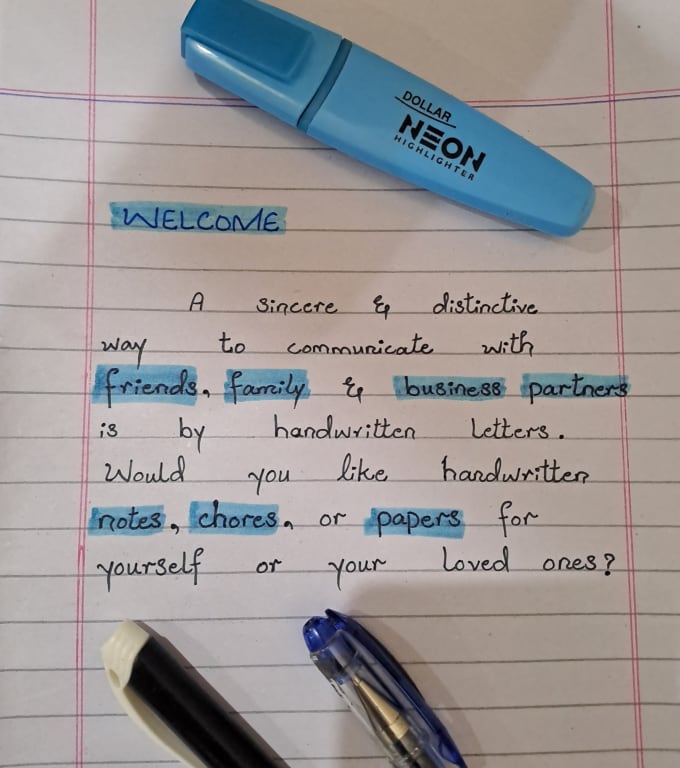 DOLLAR
NEON
HIGHLIGHTER
WELCOME
A sincere & distinctive
way to communicate with
friends, family & business partners
is by handwritten letters.
Would you like handwritten
notes, chores, or papers for
yourself or your loved ones?